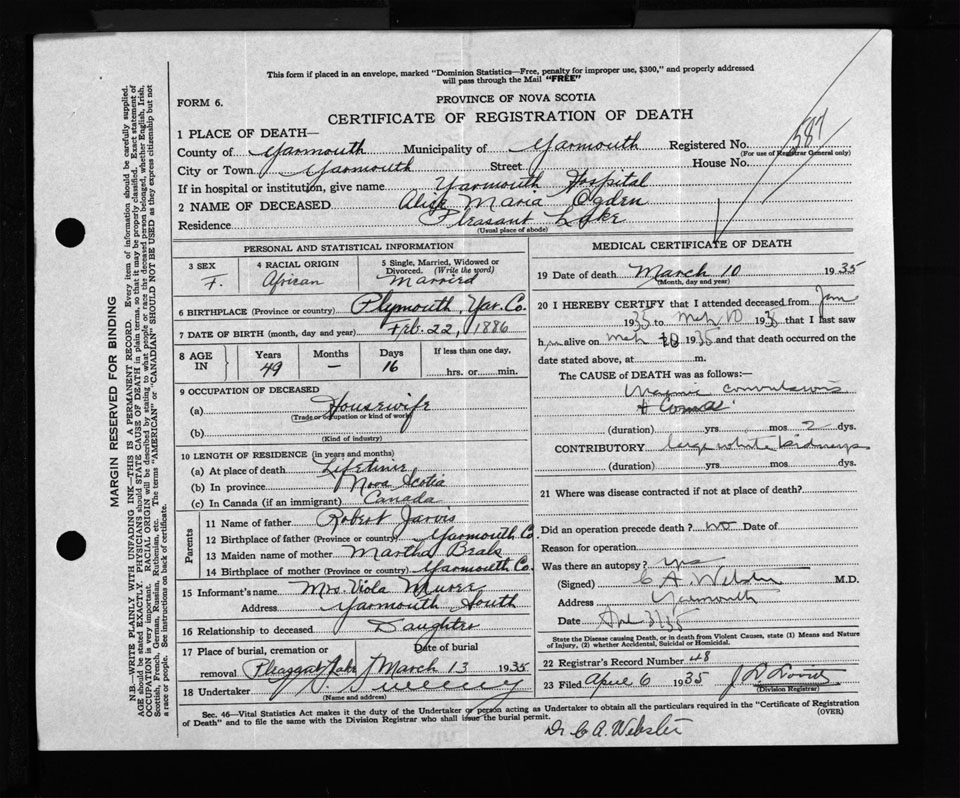 This form if placed in an envelope, marked "Dominion Statistics—Free, penalty for improper use, $300," and properly addressed
will pass through the Mail "FREE"
FORM 6.
PROVINCE OF NOVA SCOTIA
CERTIFICATE OF REGISTRATION OF DEATH
587
1 PLACE OF DEATH—
County of Yarmouth Municipality of Yarmouth Registered No.
(For use of Registrar General only)
City or Town Yarmouth Street House No.
If in hospital or institution, give name Yarmouth Hospital
2 NAME OF DECEASED Alice Maria Ogden
Residence Pleasant Lake
(Usual place of abode)
PERSONAL AND STATISTICAL INFORMATION
3 SEX F.
4 RACIAL ORIGIN African
5 Single, Married, Widowed or Divorced. (Write the word) Married
6 BIRTHPLACE (Province or country) Plymouth, Yar. Co.
7 DATE OF BIRTH (month, day and year) Feb. 22, 1886
8 AGE IN Years 49 Months — Days 16 If less than one day, hrs. or min.
9 OCCUPATION OF DECEASED
(a) Housewife
(Trade or occupation or kind of work)
(b)
(Kind of industry)
10 LENGTH OF RESIDENCE (in years and months)
(a) At place of death Lifetime
(b) In province Nova Scotia
(c) In Canada (if an immigrant) Canada
Parents
11 Name of father Robert Jarvis
12 Birthplace of father (Province or country) Yarmouth Co.
13 Maiden name of mother Martha Beals
14 Birthplace of mother (Province or country) Yarmouth Co.
15 Informant's name Mrs. Viola
Address Yarmouth South
16 Relationship to deceased Daughter
17 Place of burial, cremation or removal Date of burial
Pleasant Lake March 13 1935
18 Undertaker
(Name and address)
MEDICAL CERTIFICATE OF DEATH
19 Date of death March 10 1935
(Month, day and year)
20 I HEREBY CERTIFY that I attended deceased from Jan
1935 to Mch 10 1935 that I last saw
h alive on Mch 10 1935 and that death occurred on the
date stated above, at m.
The CAUSE of DEATH was as follows:—
Uraemic convulsions
+ coma
(duration) yrs. mos 2 dys.
CONTRIBUTORY large white kidneys
(duration) yrs. mos dys.
21 Where was disease contracted if not at place of death?
Did an operation precede death? no Date of
Reason for operation
Was there an autopsy? yes
(Signed) C A Webster M.D.
Address Yarmouth
Date
State the Disease causing Death, or in death from Violent Causes, state (1) Means and Nature
of Injury, (2) whether Accidental, Suicidal or Homicidal.
22 Registrar's Record Number 48
23 Filed April 6 1935
(Division Registrar)
Sec. 46—Vital Statistics Act makes it the duty of the Undertaker or person acting as Undertaker to obtain all the particulars required in the "Certificate of Registration
of Death" and to file the same with the Division Registrar who shall issue the burial permit. (OVER)
Dr C. A. Webster
MARGIN RESERVED FOR BINDING
N.B.—WRITE PLAINLY WITH UNFADING INK—THIS IS A PERMANENT RECORD. Every item of information should be carefully supplied.
AGE should be stated EXACTLY. PHYSICIANS should STATE CAUSE OF DEATH in plain terms, so that it may be properly classified. Exact statement of
OCCUPATION is very important. RACIAL ORIGIN will be described by stating to what people or race the deceased person belonged, whether English, Irish,
Scottish, French, German, Russian, Ruthenian, etc. The terms "AMERICAN" or "CANADIAN" SHOULD NOT BE USED as they express citizenship but not
a race or people. See instructions on back of certificate.